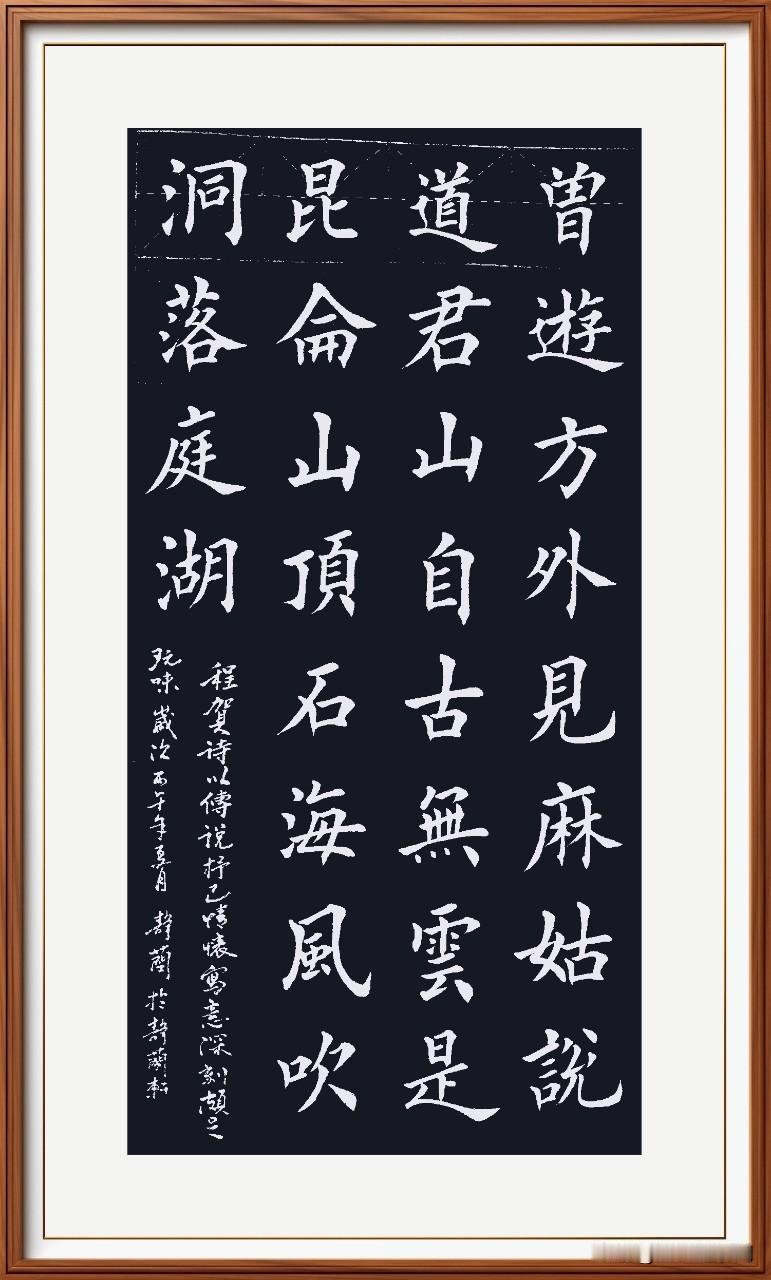 曽遊方外見麻姑說
道君山自古無雲是
昆侖山頂石海風吹
洞落庭湖
程賀詩以傳說抒己情懷寫意深刻頗足
玩味歲次丙午年夏月 靜蘭於靜蘭軒